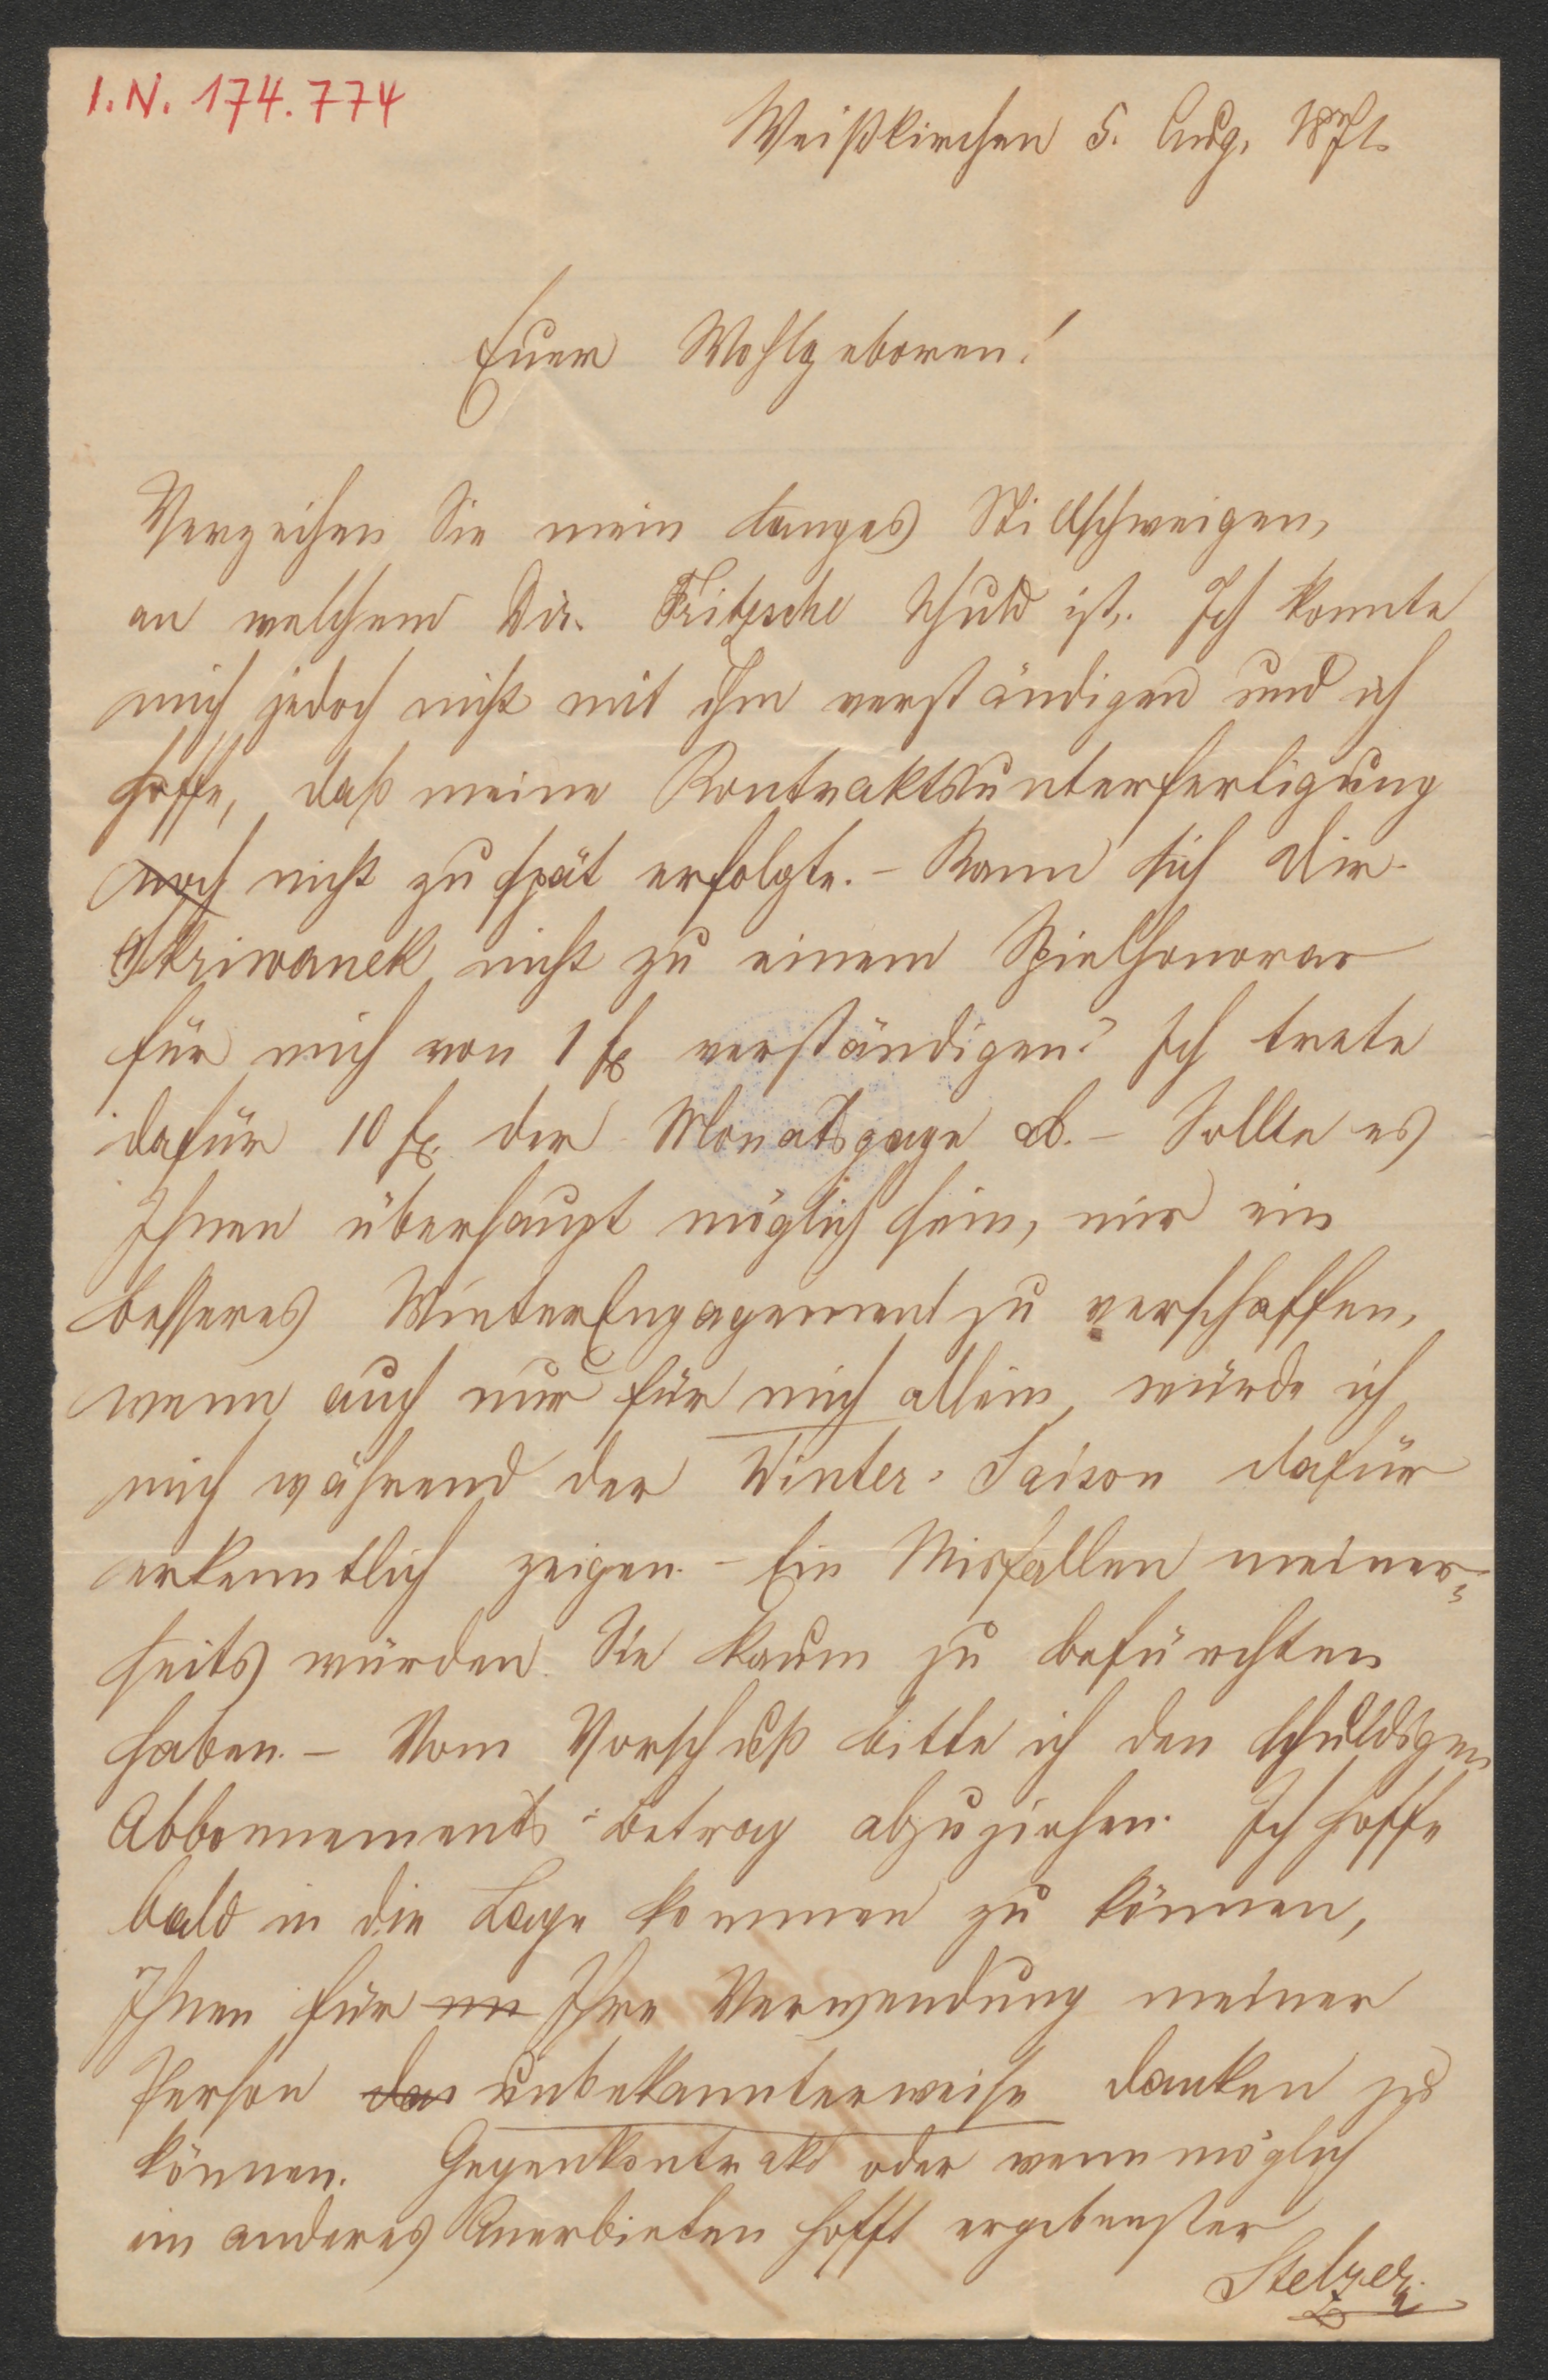 I.N. 174.774
Weißkirchen 5. Aug. 1871.
Euer Wohlgeboren!
Verzeihen Sie mein langes Stillschweigen,
an welchem Dir. Fritzsche Schuld ist. Ich konnte
mich jedoch nicht mit ihm verständigen und ich
hoffe, daß meine Kontraktsunterfertigung
noch nicht zu spät erfolgte. – Kann sich Dir.
Skriwanek nicht zu einem Spielhonorar
für mich von 1 fl verständigen? Ich trete
dafür 10 fl. der Monatsgage ab. – Sollte es
Ihnen überhaupt möglich sein, mir ein
besseres WinterEngagement zu verschaffen,
wenn auch nur für mich allein, würde ich
mich während der Winter-Saison dafür
erkenntlich zeigen. – Ein Misfallen meiner-
seits würden Sie kaum zu befürchten
haben. – Vom Vorschuß bitte ich den schuldigen
Abbonnements-betrag abzuziehen. Ich hoffe
bald in die Lage kommen zu können,
Ihnen für Ihre Verwendung meiner
Person unbekannterweise danken zu
können. Gegenkontrakt oder wenn möglich
ein anderes Anerbieten hofft ergebenster
Stelzer